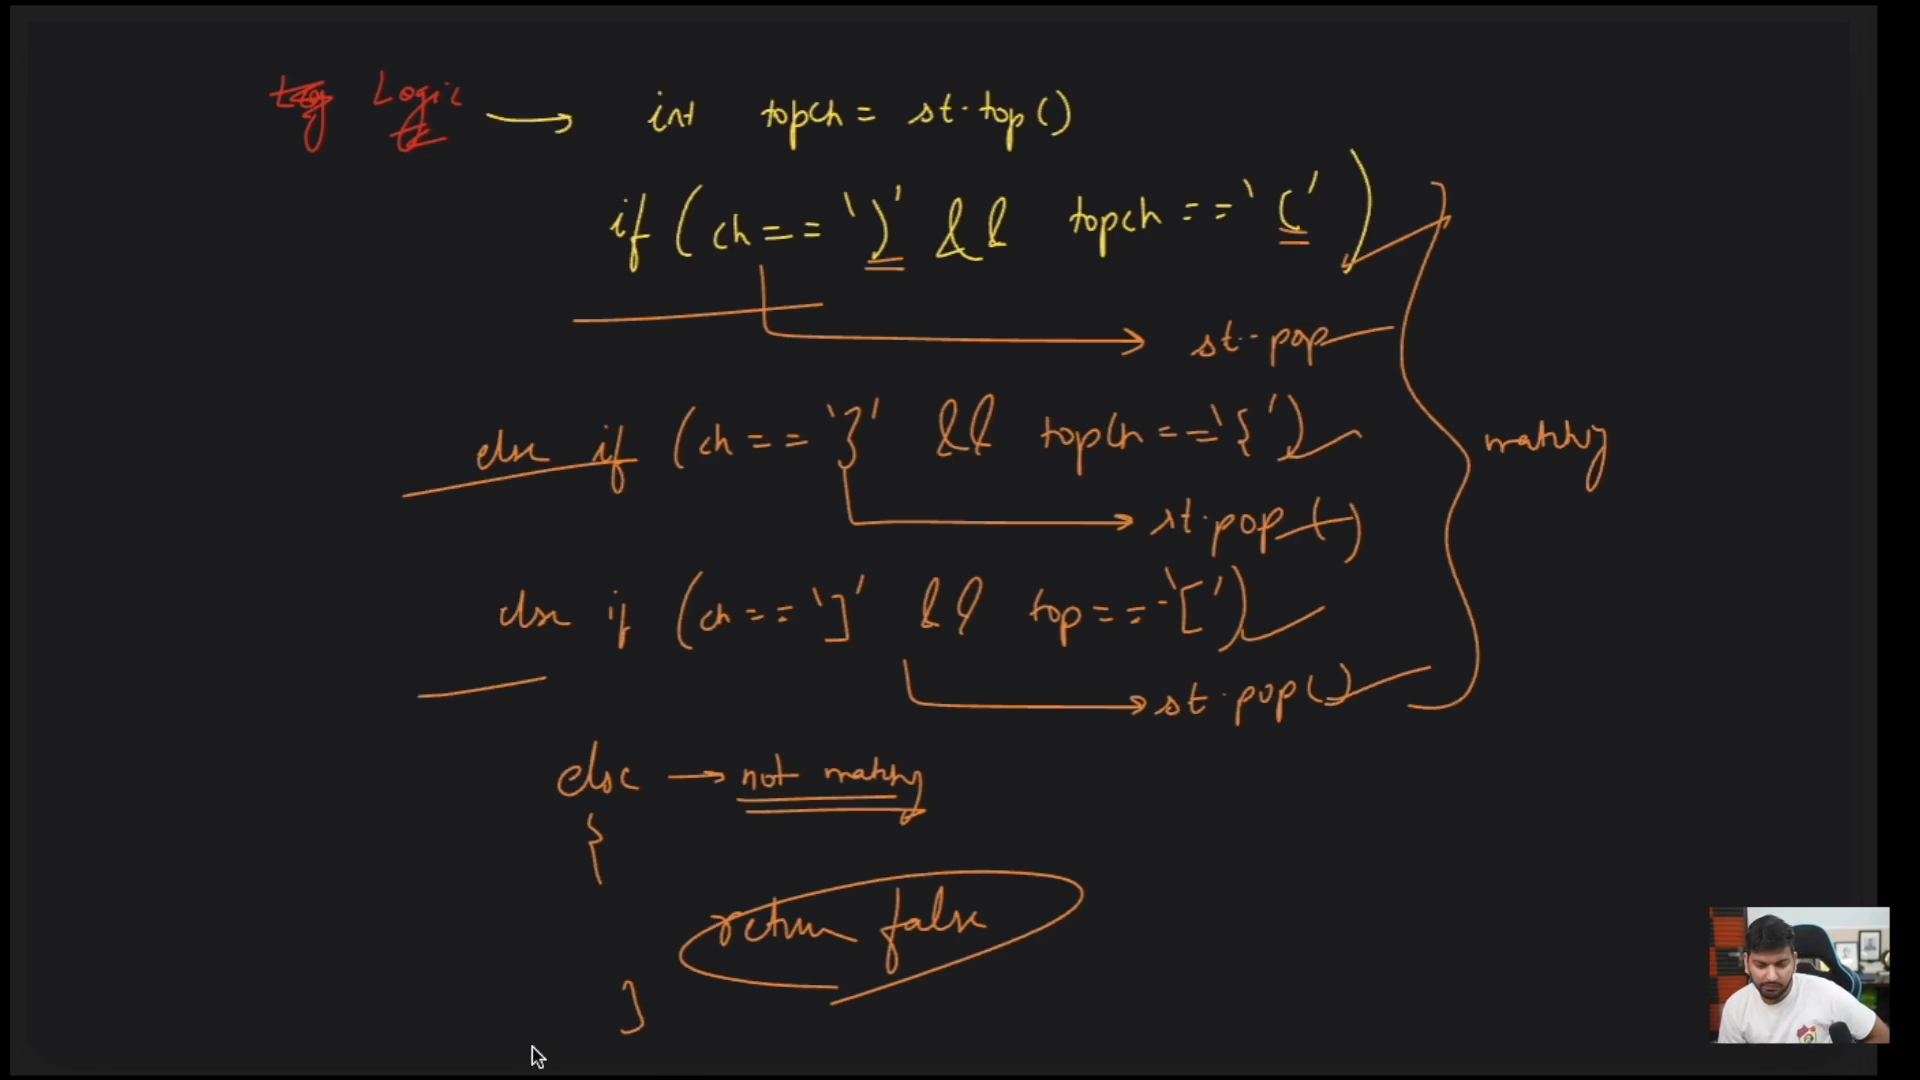 Logic → int topch = st.top()
if (ch == ')' && topch == '(')
→ st.pop
else if (ch == '}' && topch == '{')
matching
→ st.pop()
else if (ch == ']' && top == '[')
→ st.pop()
else → not matching
{
return false
}